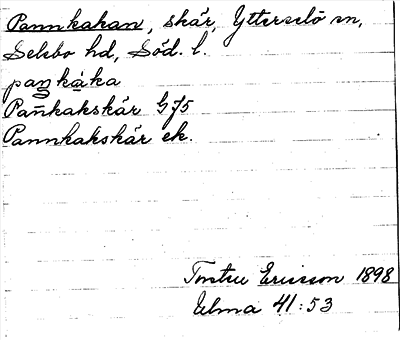 Pannkakan, skär, Ytterselö sn,
Selebo hd, Söd. l.
paŋkàka
Pan̄kakskär GJ5
Pannkakskär ek.
Torsten Ericsson 1898
Elma 41:53